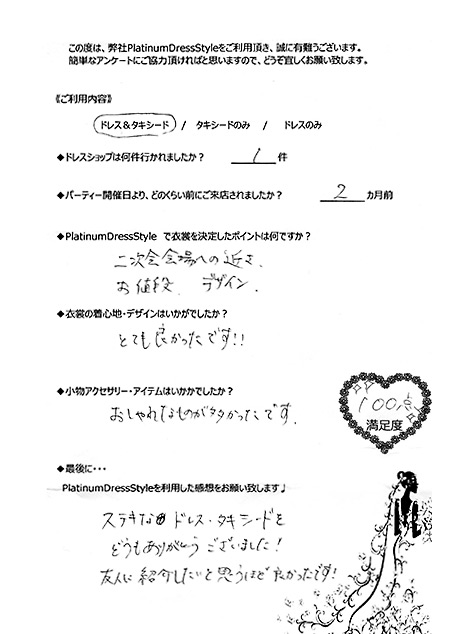 この度は、弊社PlatinumDressStyleをご利用頂き、誠に有難うございます。
簡単なアンケートにご協力頂ければと思いますので、どうぞ宜しくお願い致します。
《ご利用内容》
ドレス&タキシード / タキシードのみ / ドレスのみ
◆ドレスショップは何件行かれましたか? 1 件
◆パーティー開催日より、どのくらい前にご来店されましたか? 2 カ月前
◆PlatinumDressStyle で衣裳を決定したポイントは何ですか?
二次会会場への近さ、
お値段、デザイン、
◆衣裳の着心地・デザインはいかがでしたか?
とても良かったです!!
◆小物アクセサリー・アイテムはいかかでしたか?
おしゃれなものが多かったです、
100点
満足度
◆最後に・・・
PlatinumDressStyleを利用した感想をお願い致します♪
ステキな ドレス・タキシードを
どうもありがとうございました!
友人に紹介したいと思うほど良かったです!